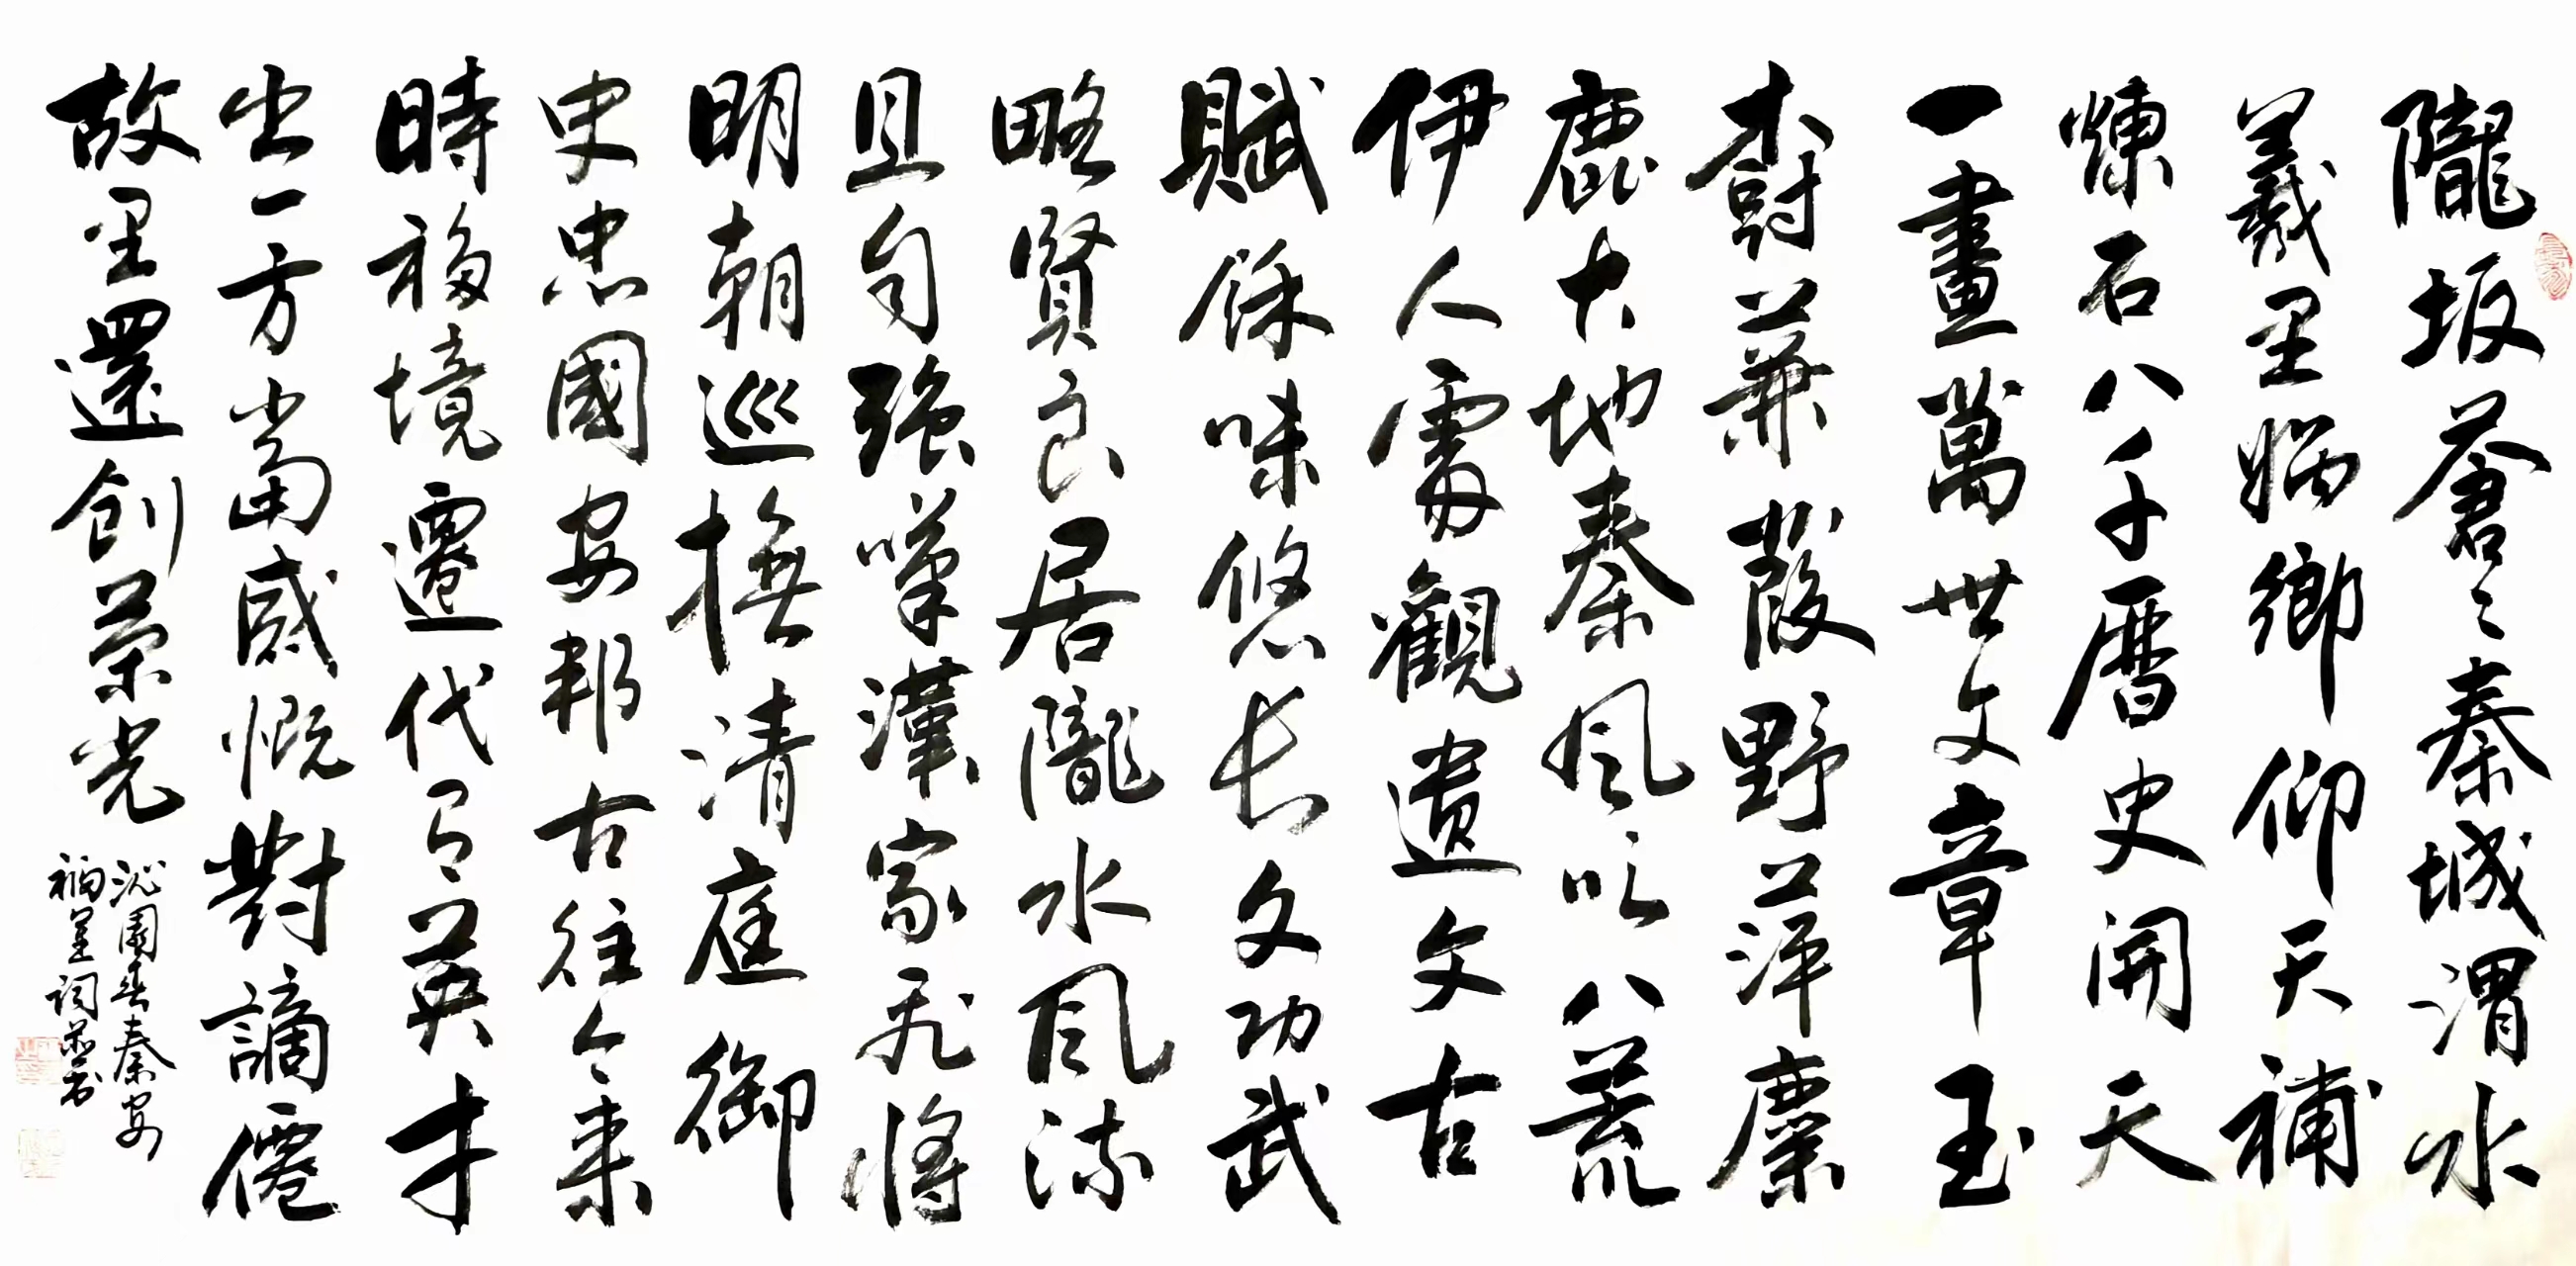 隴坂蒼々秦城渭水
羲里媧鄉仰天補
煉石八千曆史開天
一畫萬世文章玉
樹蒹葭野萍麋
鹿大地秦風吹八荒
伊人處觀遺文古
賦餘味悠長文功武
略賢良居隴水風流
且自強嘆漢家飛將
明朝巡撫清庭御
史忠國安邦古往今來
時移境遷代有英才
出一方當感慨對謫僊
故里還創榮光
沁園春秦安
詞並書